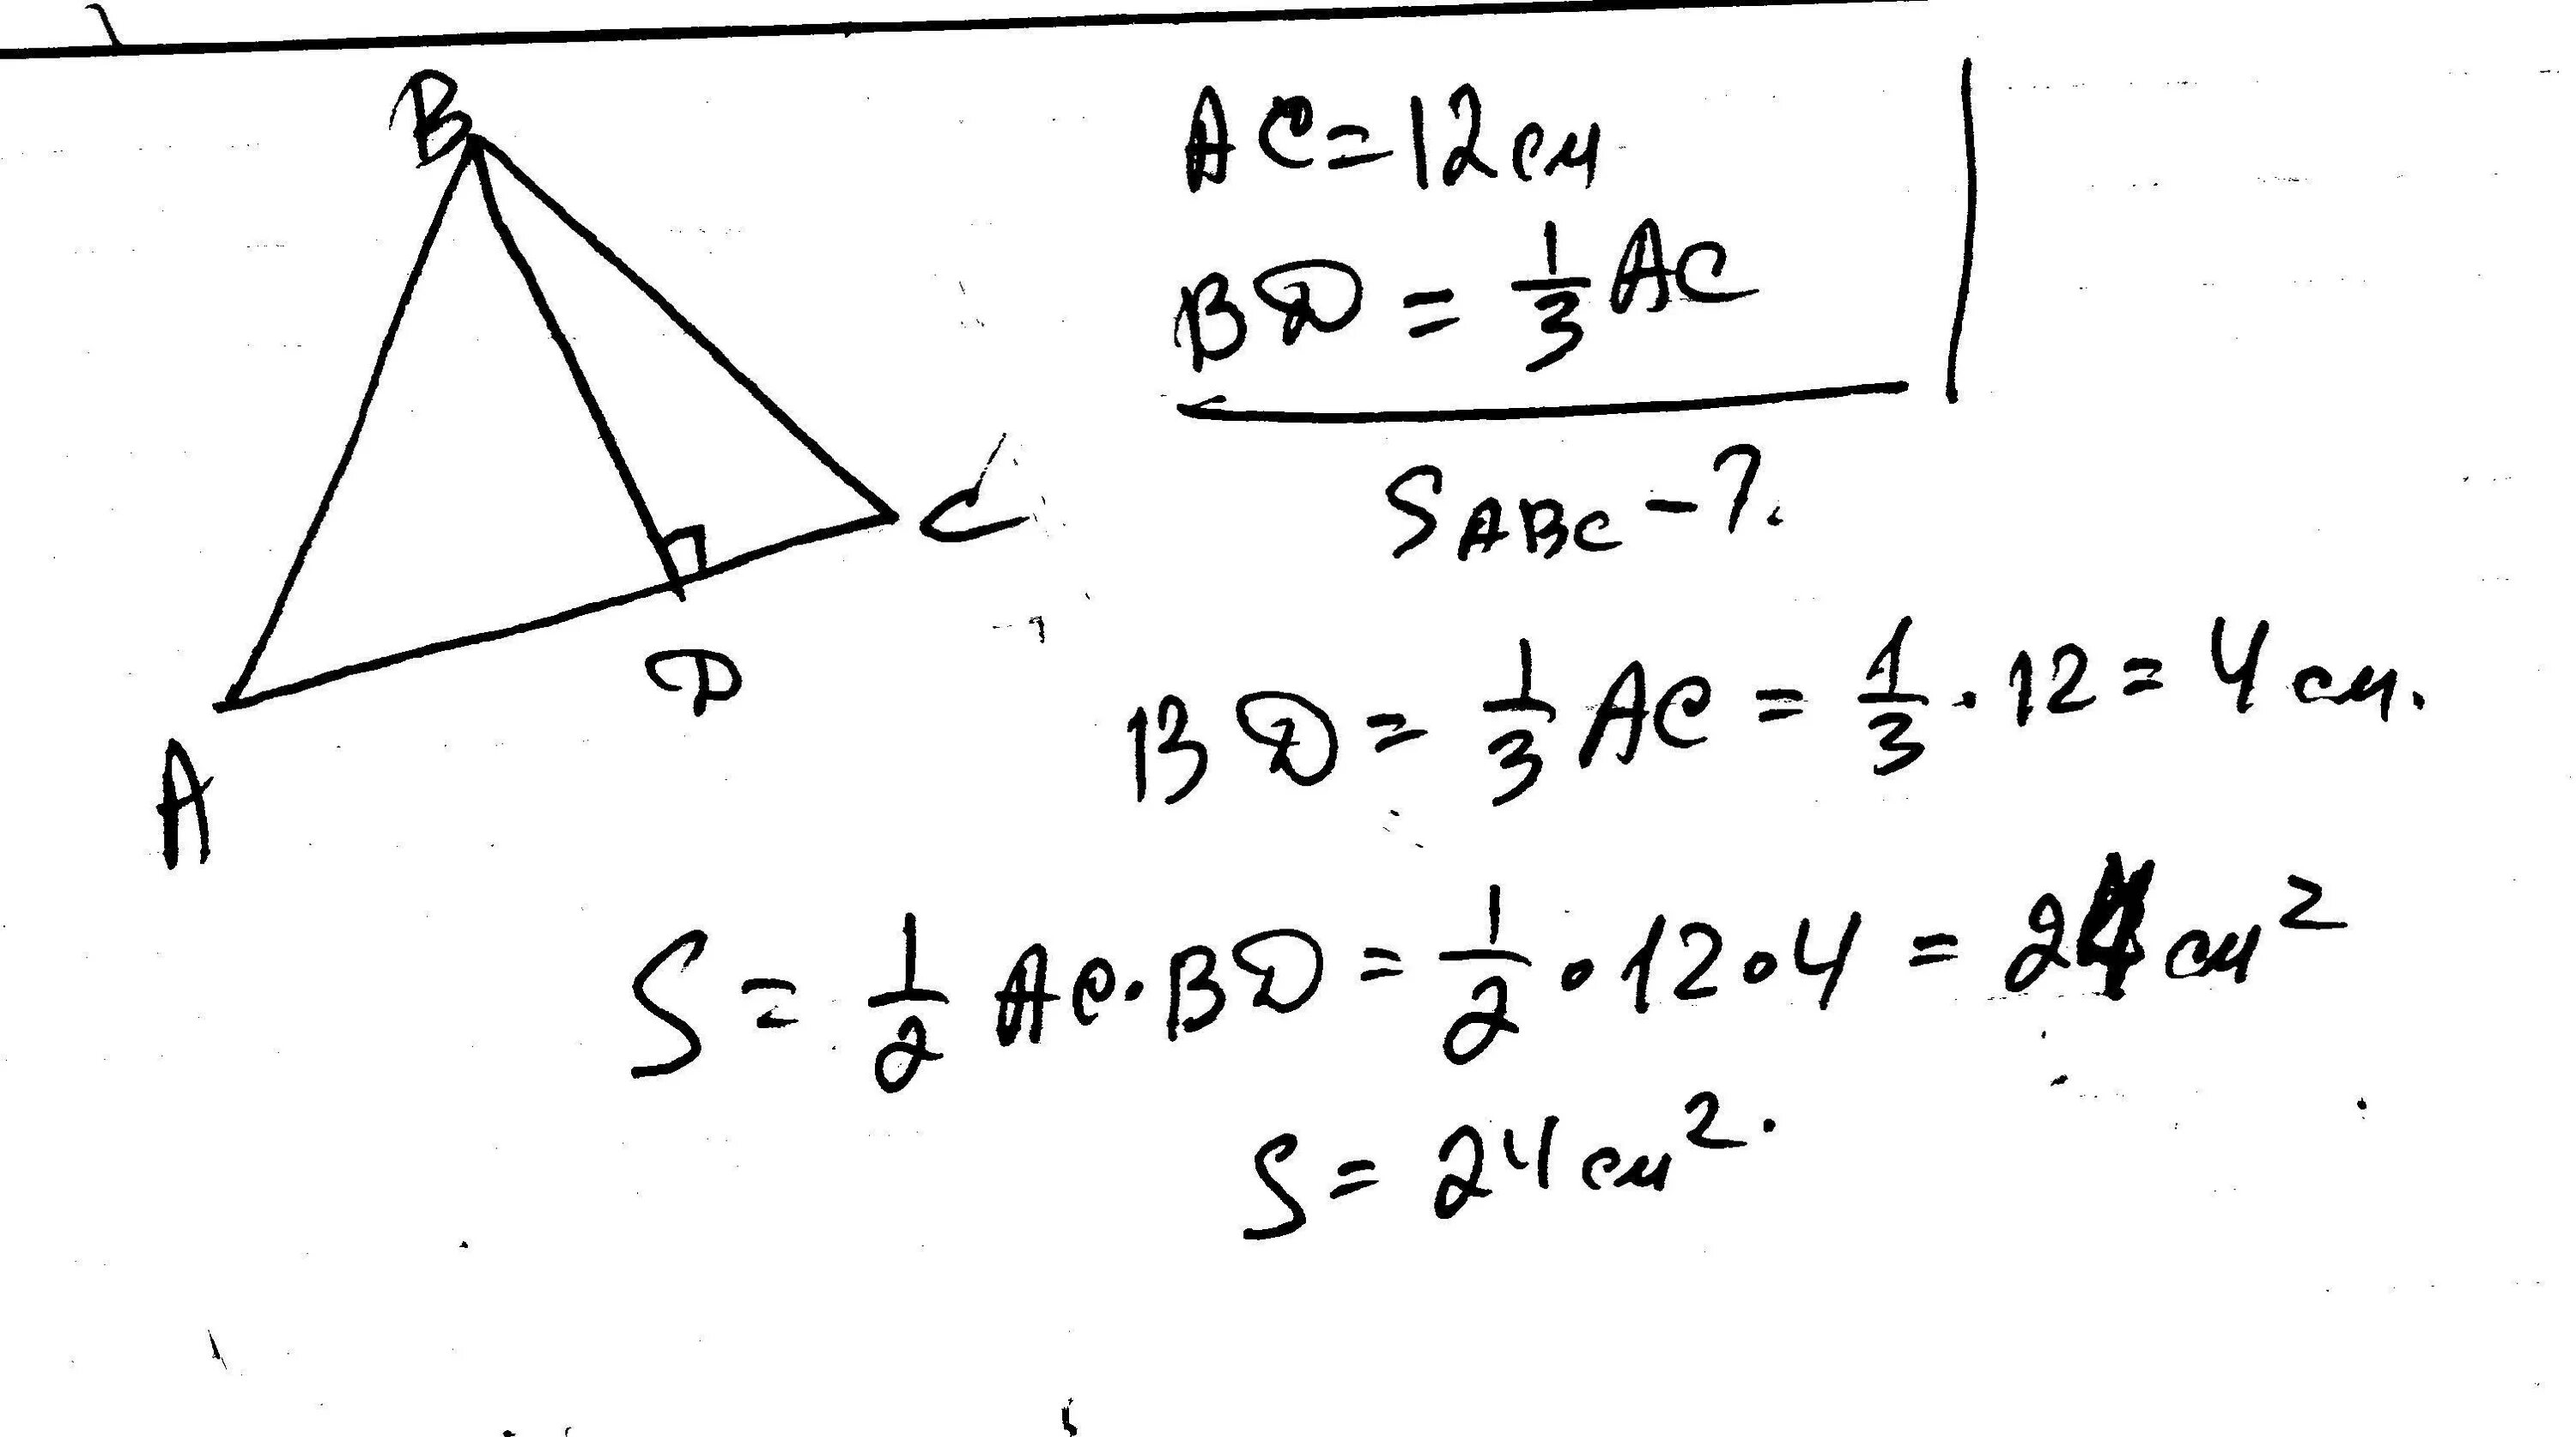 B
AC=12см
BD = 1/3 AC
C
S ABC -?.
D
A
BD = 1/3 AC = 1/3 · 12 = 4 см.
S = 1/2 AC · BD = 1/2 · 12 · 4 = 24 см²
S = 24 см².